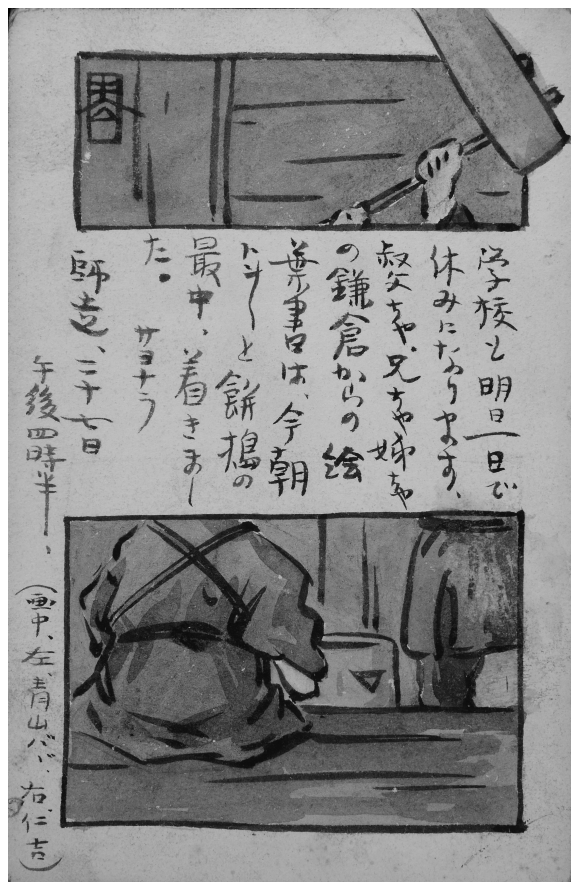 学校も明日一日で
休みになります、
叔父ちや、兄ちや姉ちや
の鎌倉からの絵
葉書は、今朝
トン〳〵と餅搗の
最中、着きまし
た。サヨナラ
師走、二十七日
午後四時半、
(画中、左、青山バヾ、右、仁吉)